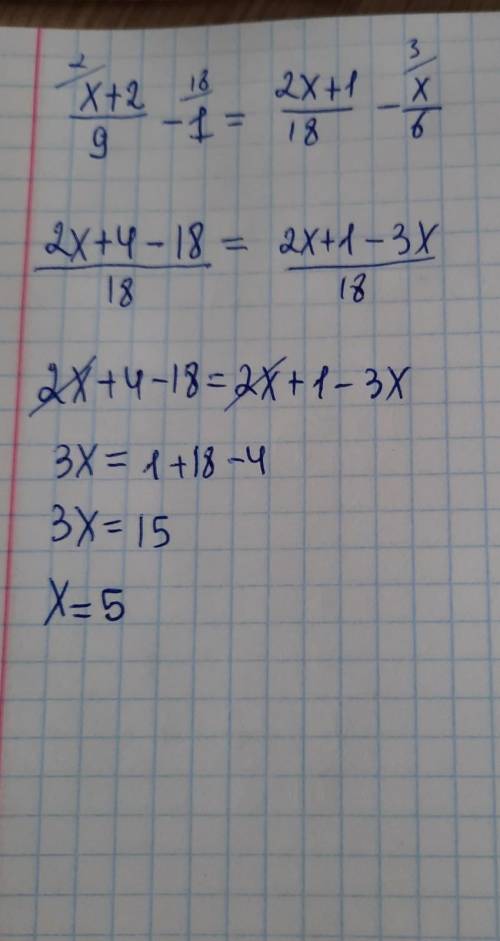 2/ (x+2)/9 - 18/ 1 = (2x+1)/18 - 3/ x/6
(2x+4-18)/18 = (2x+1-3x)/18
2x+4-18=2x+1-3x
3x=1+18-4
3x=15
x=5